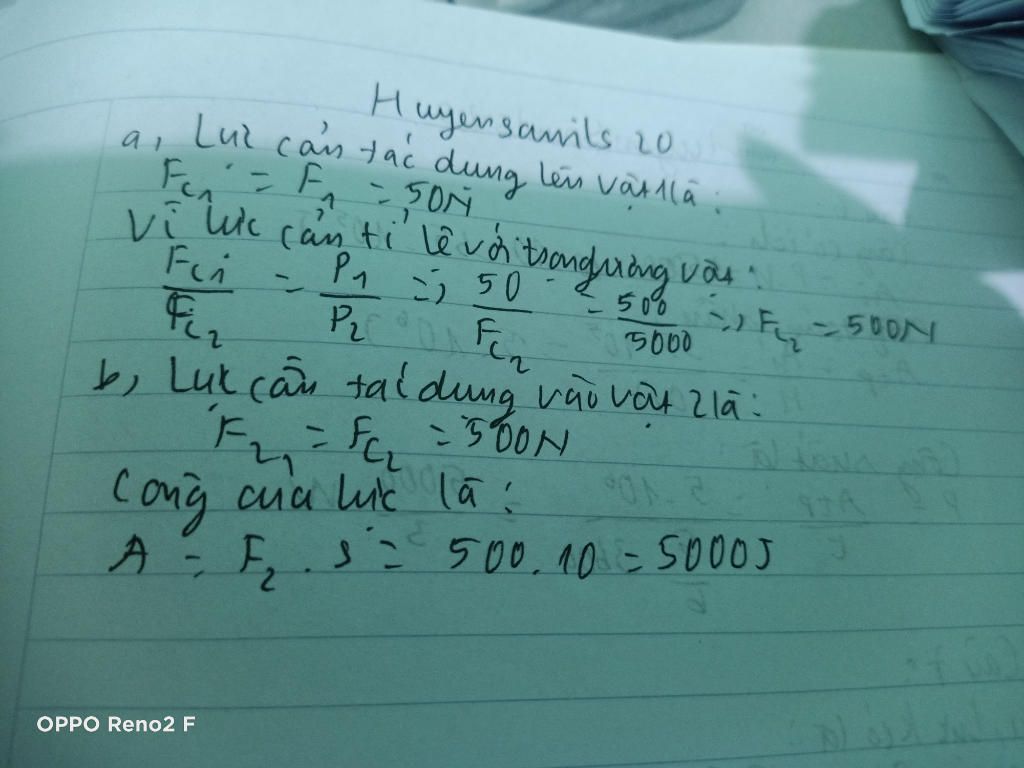 Huyensamils 20
a, Lực cản tác dụng lên vật 1 là:
Fc1 = F1 = 50N
Vì lực cản tỉ lệ với trọng lượng vật:
Fc1/Fc2 = P1/P2 => 50/Fc2 = 500/5000 => Fc2 = 500N
b, Lực cần tác dụng vào vật 2 là:
F21 = Fc2 = 500N
Công của lực là:
A = F2 . s = 500.10 = 5000J
OPPO Reno2 F